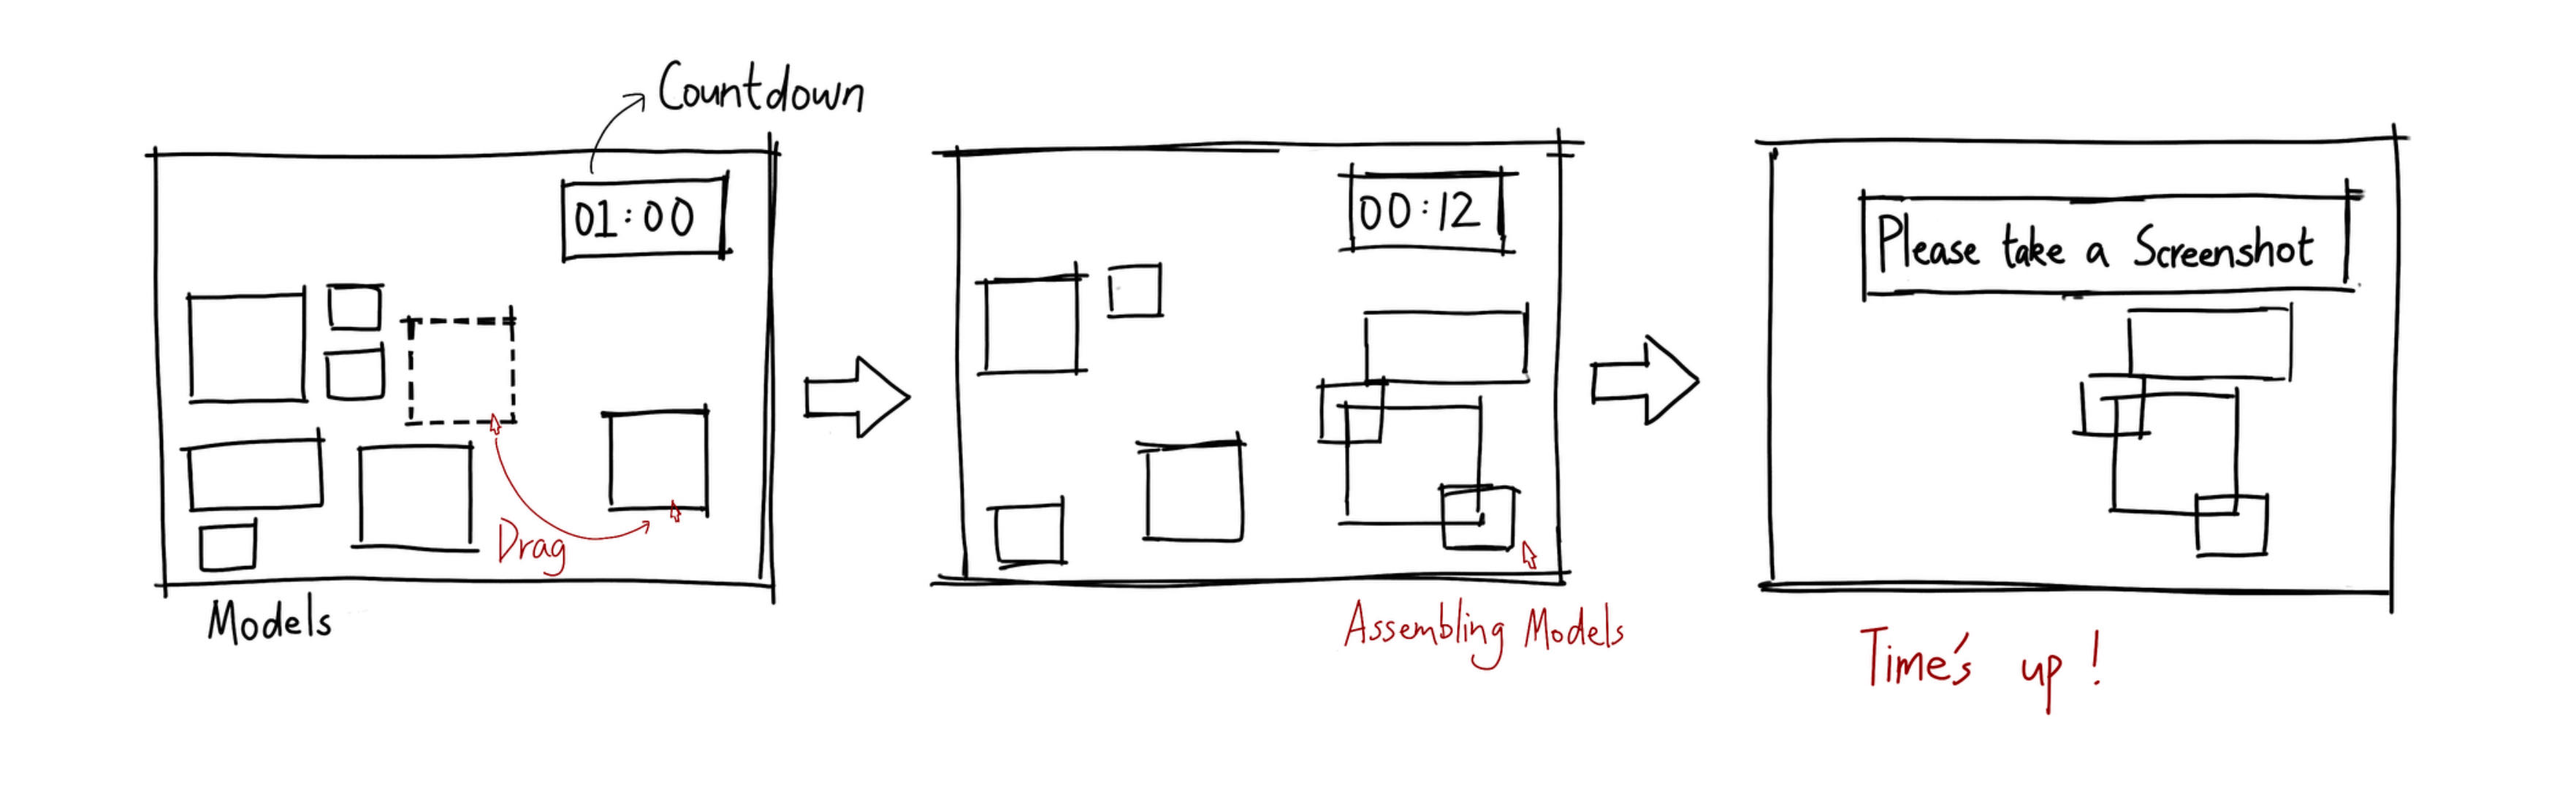 Countdown
01:00
Drag
Models
00:12
Assembling Models
Please take a Screenshot
Time's up!